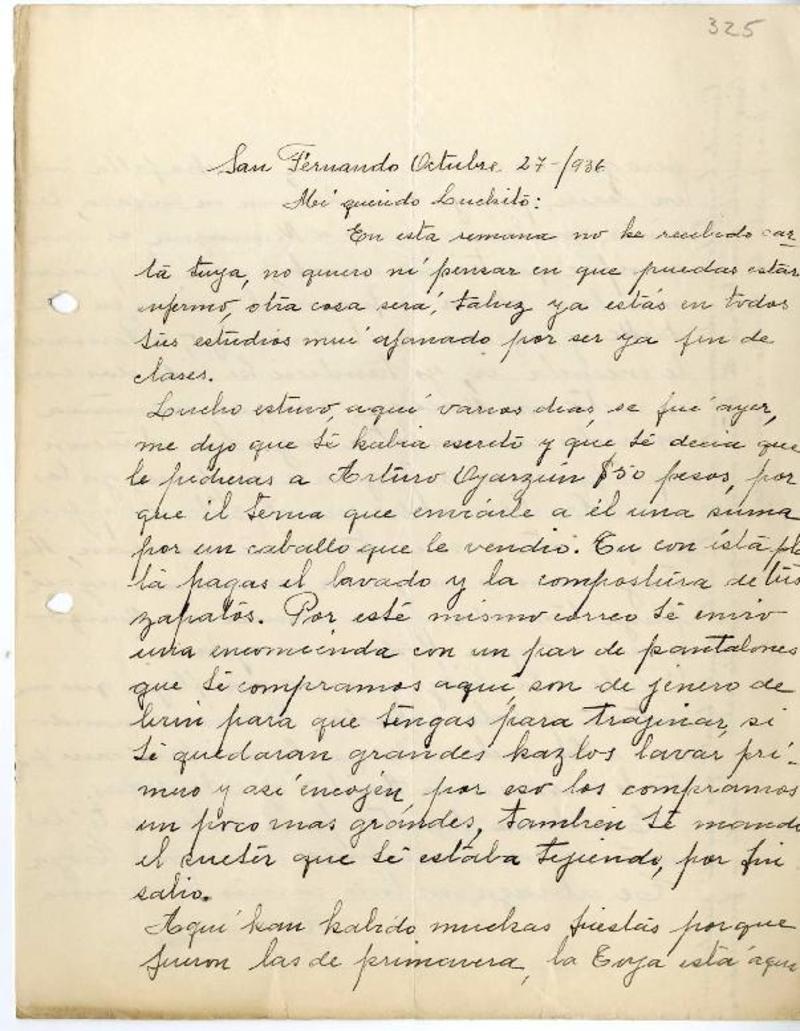 325
San Fernando Octubre 27-/936
Mi querido Luchito:
En esta semana no he recibido car
ta tuya, no quiero ni pensar en que puedas estar
enfermo, otra cosa será, talvez ya estás en todos
tus estudios mui afanado por ser ya fin de
clases.
Lucho estuvo, aquí varios dias, se fué ayer,
me dijo que té habia escrito y que té decia que
le pidieras a Arturo Oyarzún $50 pesos, por
que él tenia que enviarle a él una suma
por un caballo que le vendio. Tu con ésta pla
ta pagas el lavado y la compostura de tus
zapatos. Por esté mismo correo té envio
una encomienda con un par de pantalones
que té compramos aquí, son de jénero de
brin para que tengas para trajinar, si
té quedaran grandes hazlos lavar pri-
mero y así encojén por eso los compramos
un poco mas grandes, también té mando
el sueter que té estaba tejiendo, por fin
salio.
Aquí han habido muchas fiestas porque
fueron las de primavera, la Eva está aqui